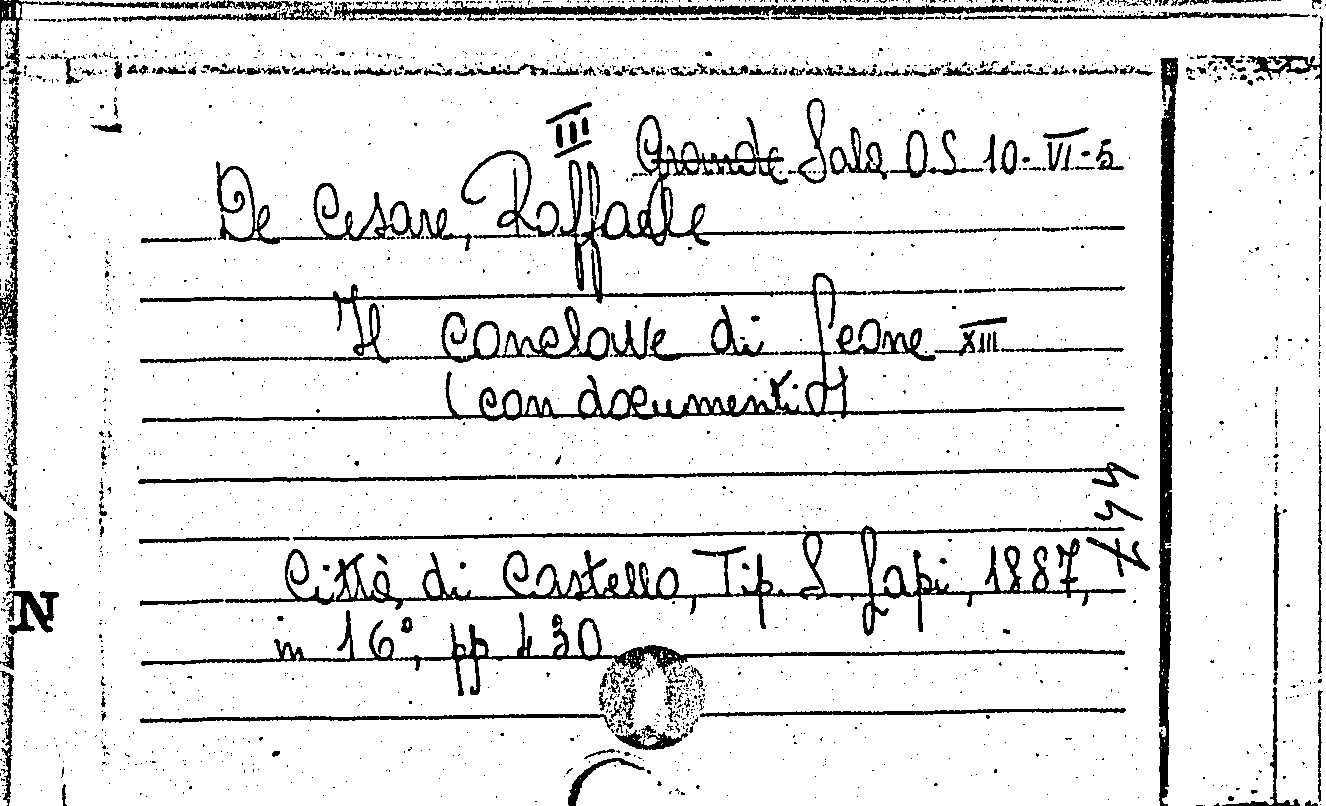 III
Grande Sala O.S 10-VI-5
De Cesare, Raffaele
Il conclave di Leone XIII
(con documenti)
Città di Castello, Tip. S. Lapi, 1887,
in 16°, pp 430
N